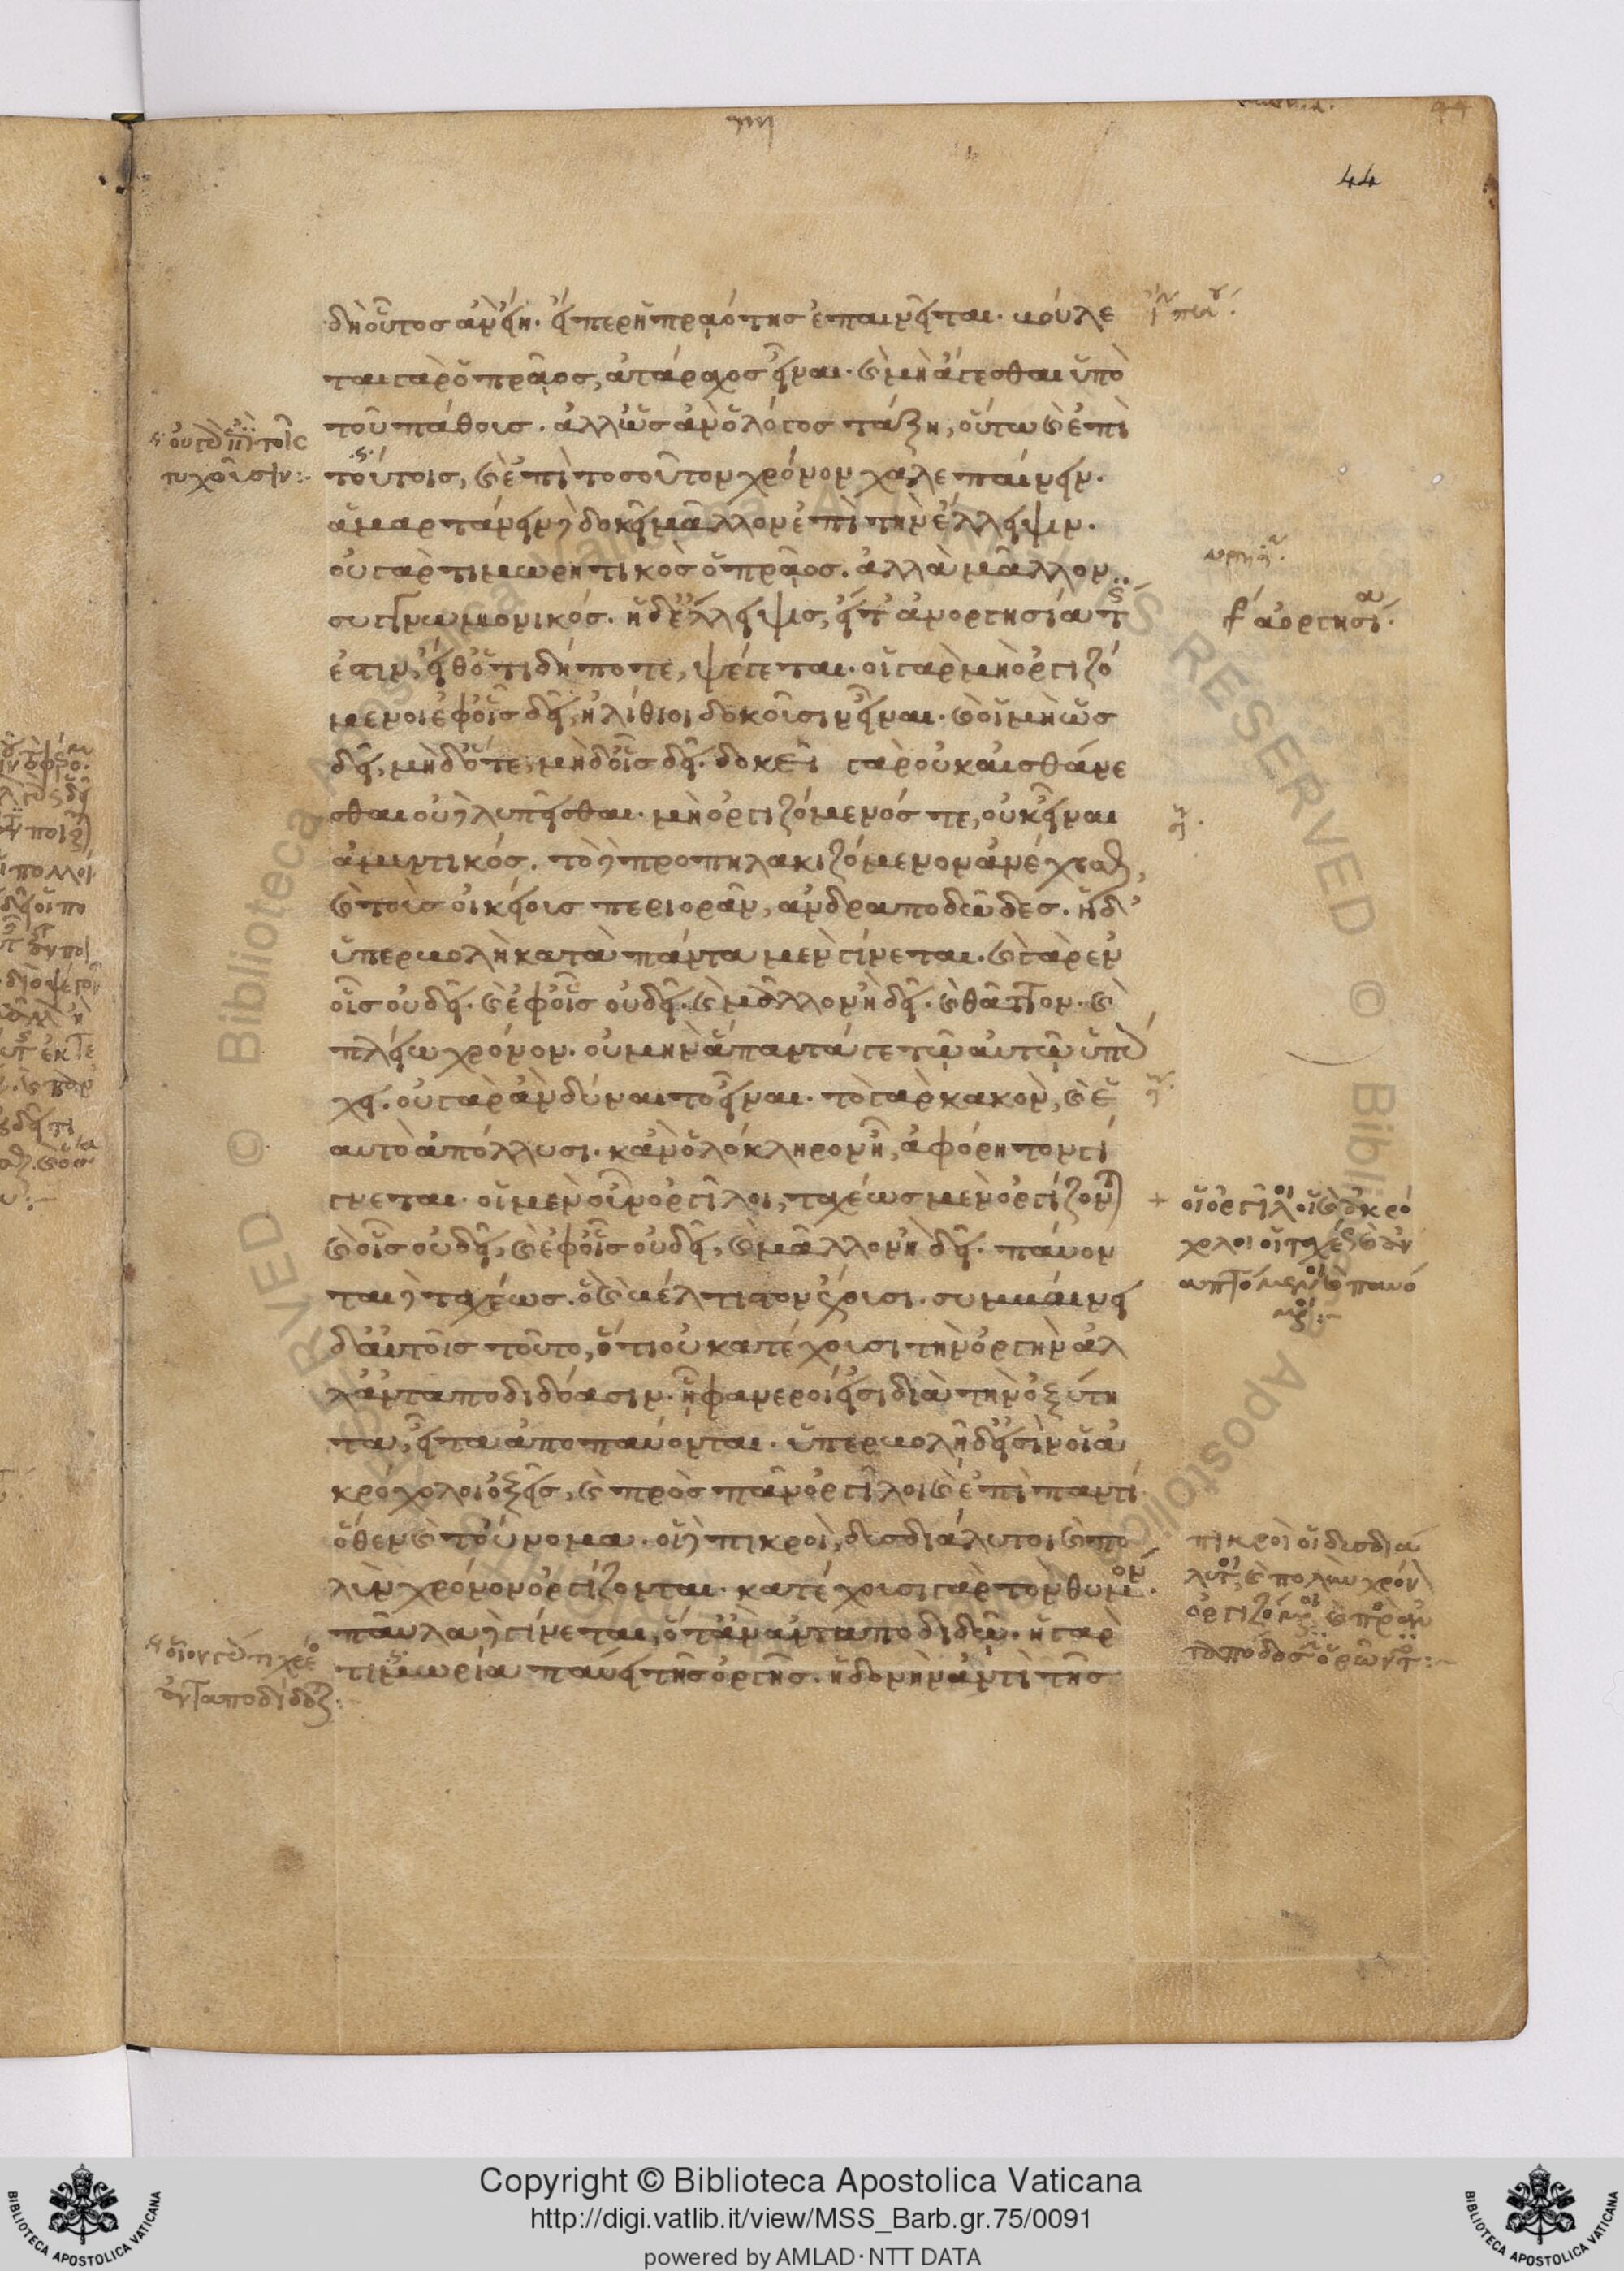 44
δὴ οὗτος ἂν εἴη. εἴπερ ἡ πραότης ἐπαινεῖται. βούλε
ται γὰρ ὁ πρᾶος, ἀτάραχος εἶναι. καὶ μὴ ἄγεσθαι ὑπὸ
τοῦ πάθους. ἀλλ' ὡς ἂν ὁ λόγος τάξῃ, οὕτω καὶ ἐπὶ
τούτοις, καὶ ἐπὶ τοσοῦτον χρόνον χαλεπαίνειν.
ἁμαρτάνειν δὲ δοκεῖ μᾶλλον ἐπὶ τὴν ἔλλειψιν.
οὐ γὰρ τιμωρητικὸς ὁ πρᾶος. ἀλλὰ μᾶλλον
συγγνωμονικός. ἡ δ' ἔλλειψις, εἴτ' ἀοργησία τίς
ἐστιν, εἴθ' ὅτι δήποτε, ψέγεται. οἱ γὰρ μὴ ὀργιζό
μενοι ἐφ' οἷς δεῖ, ἠλίθιοι δοκοῦσιν εἶναι. καὶ οἱ μὴ ὡς
δεῖ, μηδ' ὅτε, μηδ' οἷς δεῖ. δοκεῖ γὰρ οὐκ αἰσθάνε
σθαι οὐδὲ λυπεῖσθαι. μὴ ὀργιζόμενός τε, οὐκ εἶναι
ἀμυντικός. τὸ δὲ προπηλακιζόμενον ἀνέχεσθαι,
καὶ τοὺς οἰκείους περιορᾶν, ἀνδραποδῶδες. ἡ δ'
ὑπερβολὴ κατὰ πάντα μὲν γίνεται. καὶ γὰρ ἐν
οἷς οὐ δεῖ. καὶ ἐφ' οἷς οὐ δεῖ. καὶ μᾶλλον ἢ δεῖ. καὶ θᾶττον. καὶ
πλείω χρόνον. οὐ μὴν ἅπαντά γε τῷ αὐτῷ ὑπάρ
χει. οὐ γὰρ ἂν δύναιτο εἶναι. τὸ γὰρ κακὸν, καὶ ἑ
αυτὸ ἀπόλλυσι. κἂν ὁλόκληρον ᾖ, ἀφόρητον γί
γνεται. οἱ μὲν οὖν ὀργίλοι, ταχέως μὲν ὀργίζονται
καὶ οἷς οὐ δεῖ, καὶ ἐφ' οἷς οὐ δεῖ, καὶ μᾶλλον ἢ δεῖ. παύον
ται δὲ ταχέως. ὃ καὶ βέλτιστον ἔχουσι. συμβαίνει
δ' αὐτοῖς τοῦτο, ὅτι οὐ κατέχουσι τὴν ὀργὴν ἀλ
λ' ἀνταποδιδόασιν. ᾗ φανεροί εἰσι διὰ τὴν ὀξύτη
τα, εἶτα ἀποπαύονται. ὑπερβολῇ δ' εἰσὶν οἱ ἀ
κρόχολοι ὀξεῖς, καὶ πρὸς πᾶν ὀργίλοι καὶ ἐπὶ παντί
ὅθεν καὶ τοὔνομα. οἱ δὲ πικροὶ, δυσδιάλυτοι καὶ πο
λὺν χρόνον ὀργίζονται. κατέχουσι γὰρ τὸν θυμόν.
παῦλα δὲ γίνεται, ὅταν ἀνταποδιδῶ. ἡ γὰρ
τιμωρία παύει τῆς ὀργῆς. ἡδονὴν ἀντὶ τῆς
οὕτω ἐπὶ τοῖς
τυχοῦσιν:
οἱ ὀργίλοι οἱ καὶ ἀκρό
χολοι οἱ ταχέως καὶ ἀν
απτόμενοι καὶ παυό
μενοι:
πικροὶ οἱ δυσδιά
λυτοι, καὶ πολὺν χρόνον
Copyright © Biblioteca Apostolica Vaticana
http://digi.vatlib.it/view/MSS_Barb.gr.75/0091
powered by AMLAD·NTT DATA
BIBLIOTECA APOSTOLICA VATICANA
BIBLIOTECA APOSTOLICA VATICANA